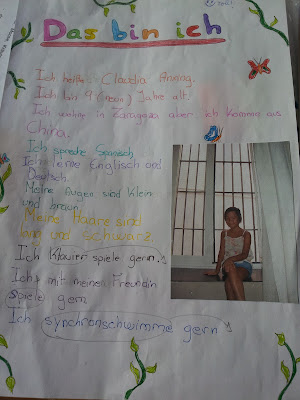 Das bin ich
Ich heiße Claudia Anning.
Ich bin 9 (neun) Jahre alt.
Ich wohne in Zaragoza aber ich komme aus
China.
Ich spreche Spanisch
Ich lerne Englisch und
Deutsch.
Meine Augen sind klein
und braun.
Meine Haare sind
lang und schwarz.
Ich Klavier spiele gern.
Ich mit meinen Freundin
spiele gern
Ich synchronschwimme gern